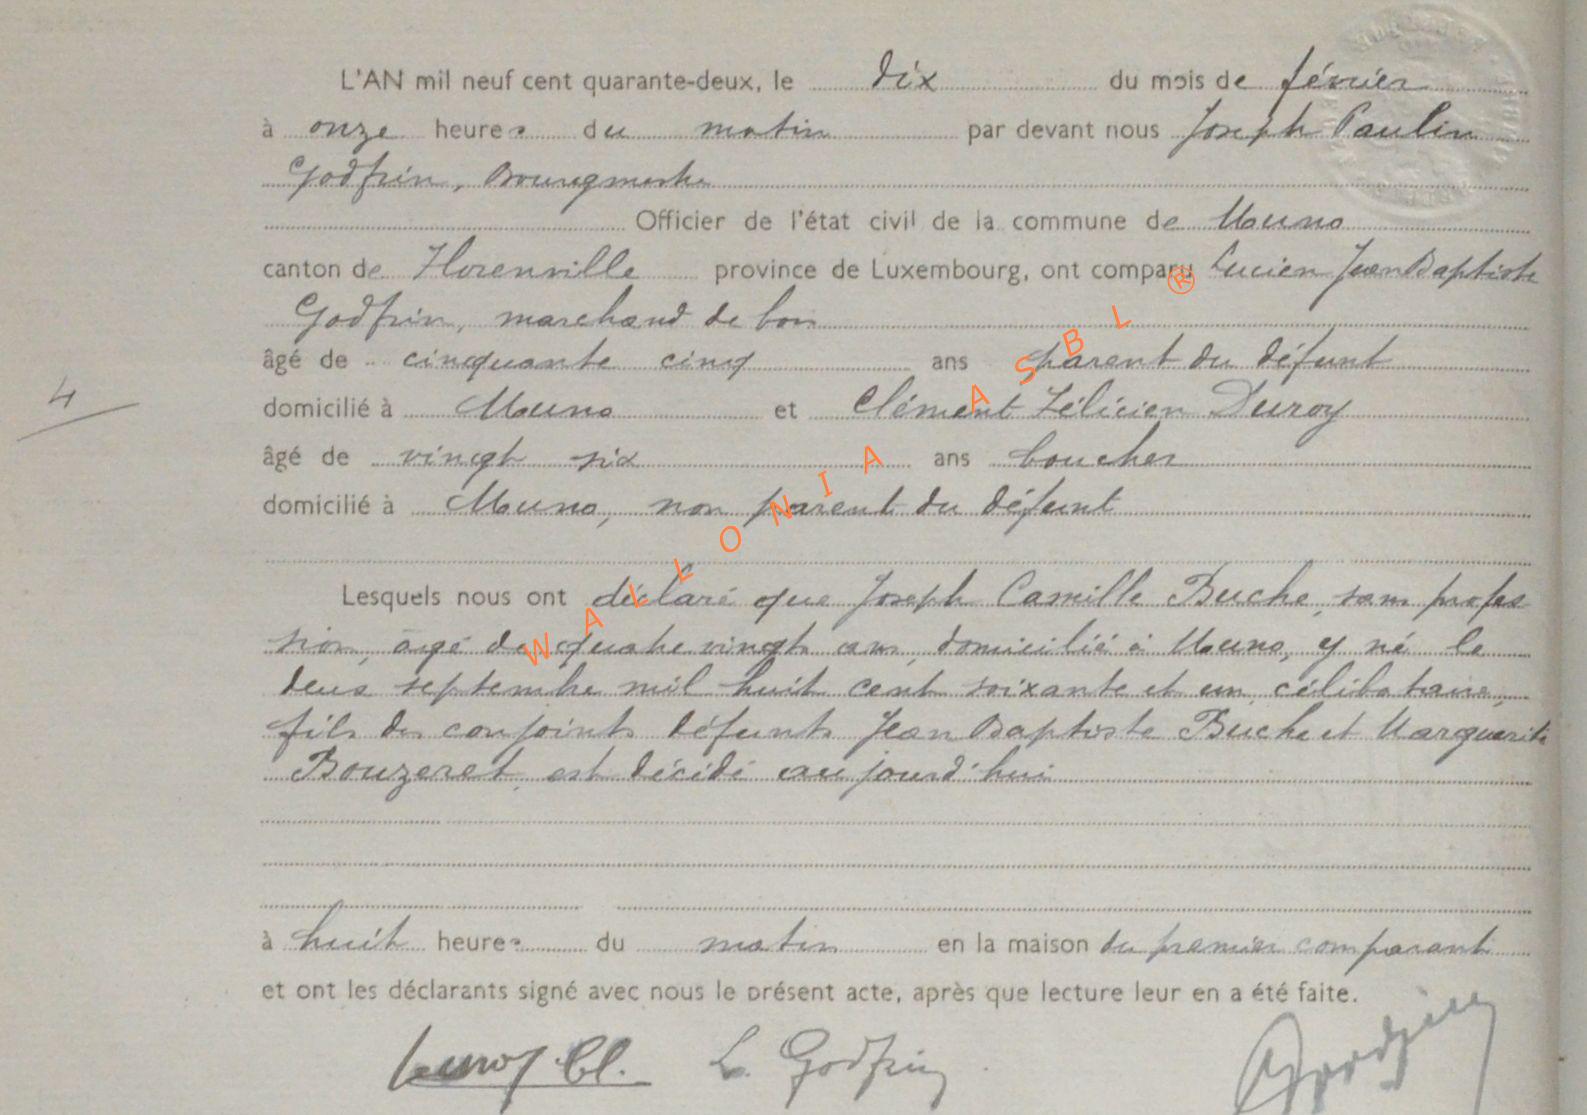 L'AN mil neuf cent quarante-deux, le dix du mois de février
à onze heures du matin par devant nous Joseph Paulin
Godfrin, Bourgmestre
Officier de l'état civil de la commune de Muno
canton de Florenville province de Luxembourg, ont comparu Lucien Jean Baptiste
Godfrin, marchand de bois
âgé de cinquante cinq ans parent du défunt
4
domicilié à Muno et Clément Félicien Duroy
âgé de vingt six ans boucher
domicilié à Muno, non parent du défunt
Lesquels nous ont déclaré que Joseph Camille Buche, sans profes
sion, âgé de quatre vingts ans, domicilié à Muno, y né le
deux septembre mil huit cent soixante et un, célibataire,
fils des conjoints défunts Jean Baptiste Buche et Marguerite
Bouzeret, est décédé aujourd'hui
à huit heures du matin en la maison du premier comparant
et ont les déclarants signé avec nous le présent acte, après que lecture leur en a été faite.
Duroy Cl. L. Godfrin Godfrin
WALLONIA ASBL ®